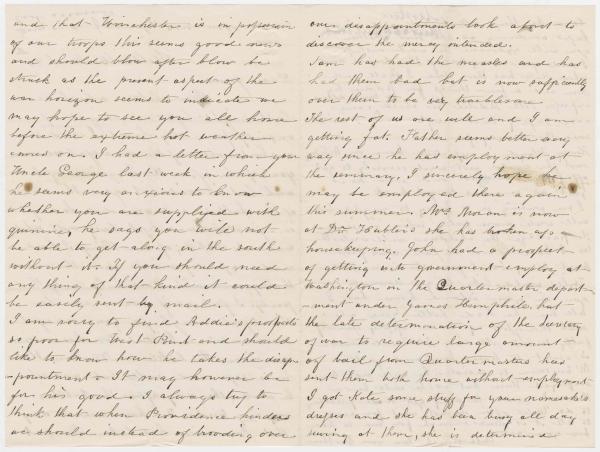 and that Winchester is in possession
of our troops this seems good news
and should blow after blow be
struck as the present aspect of the
war horizon seems to indicate we
may hope to see you all home
before the extreme hot weather
comes on. I had a letter from your
Uncle George last week in which
he seems very anxious to know
whether you are supplied with
quinine, he says you will not
be able to get along in the south
without it. If you should need
any thing of that kind it could
be easily sent by mail.
I am sorry to find Addie's prospects
so poor for West Point and should
like to know how he takes the disap-
-pointment. It may however be
for his good. I always try to
think that when Providence hinders
we should instead of brooding over
our disappointments look about to
discover the mercy intended.
Sam has had the measles and has
had them bad but is now sufficiently
over them to be very troublesome
The rest of us are well and I am
getting fat. Father seems better every
way since he has employment at
the seminary. I sincerely hope he
may be employed there again
this summer. Mrs is now
at Dr she has broken up
housekeeping. John had a prospect
of getting into government employ at
Washington in the Quarter master depart
-ment under James but
the late determination of the Secretary
of war to require large amount
of bail from Quarter masters has
sent them both home without employment
I got Kate some stuff for your namesake's
dresses and she has been busy all day
sewing at them, she is determined